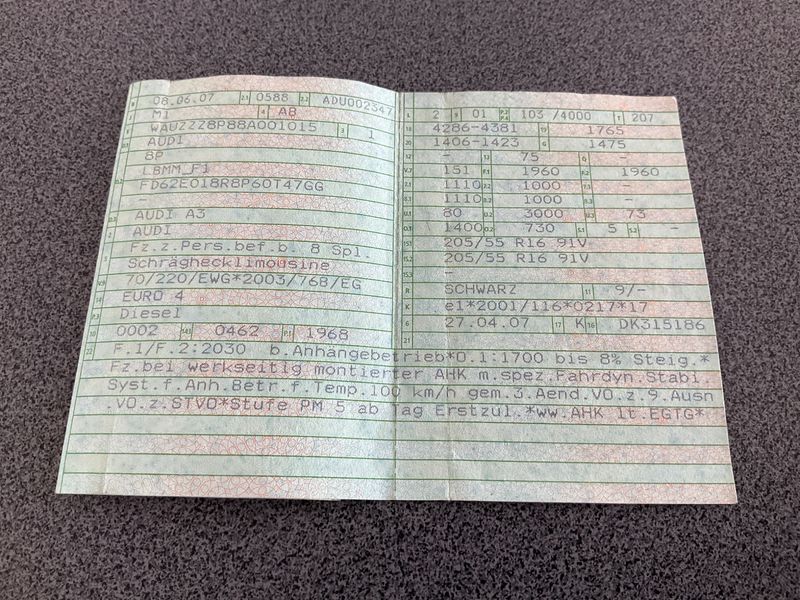 B 08.06.07 2.1 0588 2.2 ADU002347
J M1 4 AB
E WAUZZZ8P88A001015 3 1
AUDI
8P
LBMM_F1
FD62E018R8P60T47GG
-
AUDI A3
AUDI
Fz.z.Pers.bef.b. 8 Spl.
Schräghecklimousine
70/220/EWG*2003/768/EG
EURO 4
Diesel
10 0002 14.1 0462 P.1 1968
L 2 9 01 P.2 P.4 103 /4000 T 207
18 4286-4381 19 1765
20 1406-1423 G 1475
12 - 13 75 Q -
V.7 151 F.1 1960 F.2 1960
7.1 1110 7.2 1000 7.3 -
8.1 1110 8.2 1000 8.3 -
U.1 80 U.2 3000 U.3 73
O.1 1400 O.2 730 S.1 5 S.2 -
15.1 205/55 R16 91V
15.2 205/55 R16 91V
15.3 -
R SCHWARZ 11 9/-
K e1*2001/116*0217*17
6 27.04.07 17 K 16 DK315186
21
22 F.1/F.2:2030 b.Anhängebetrieb*O.1:1700 bis 8% Steig.*
Fz.bei werkseitig montierter AHK m.spez.Fahrdyn.Stabi.
Syst.f.Anh.Betr.f.Temp.100 km/h gem.3.Aend.VO.z.9.Ausn
.VO.z.STVO*Stufe PM 5 ab Tag Erstzul.*ww.AHK lt.EGTG*